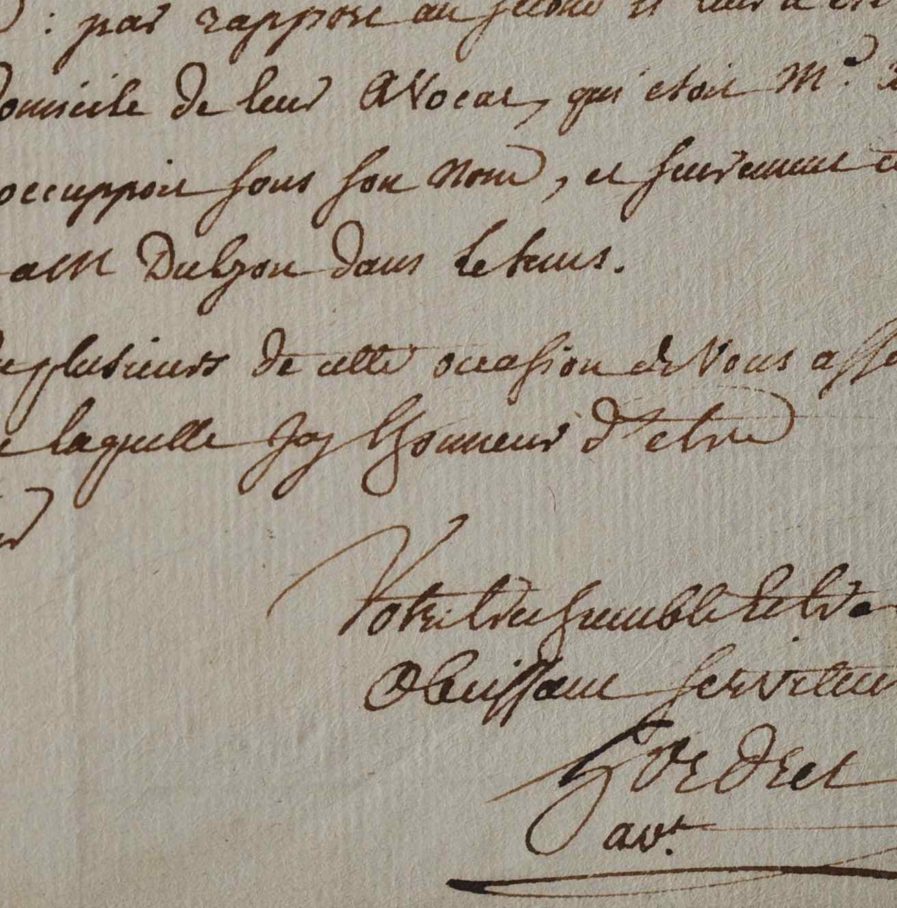 : par rapport au second et
domicile de leur Avocat, qui etoit Mᵉ.
occuppoit sous son Nom, et seurement
a M Dulyon dans letems.
plusieurs de cette occasion de Vous asse
laquelle Jay lhonneur d'etre
Votre tres humble et tres
Obeissant serviteur
Hordret
avt.